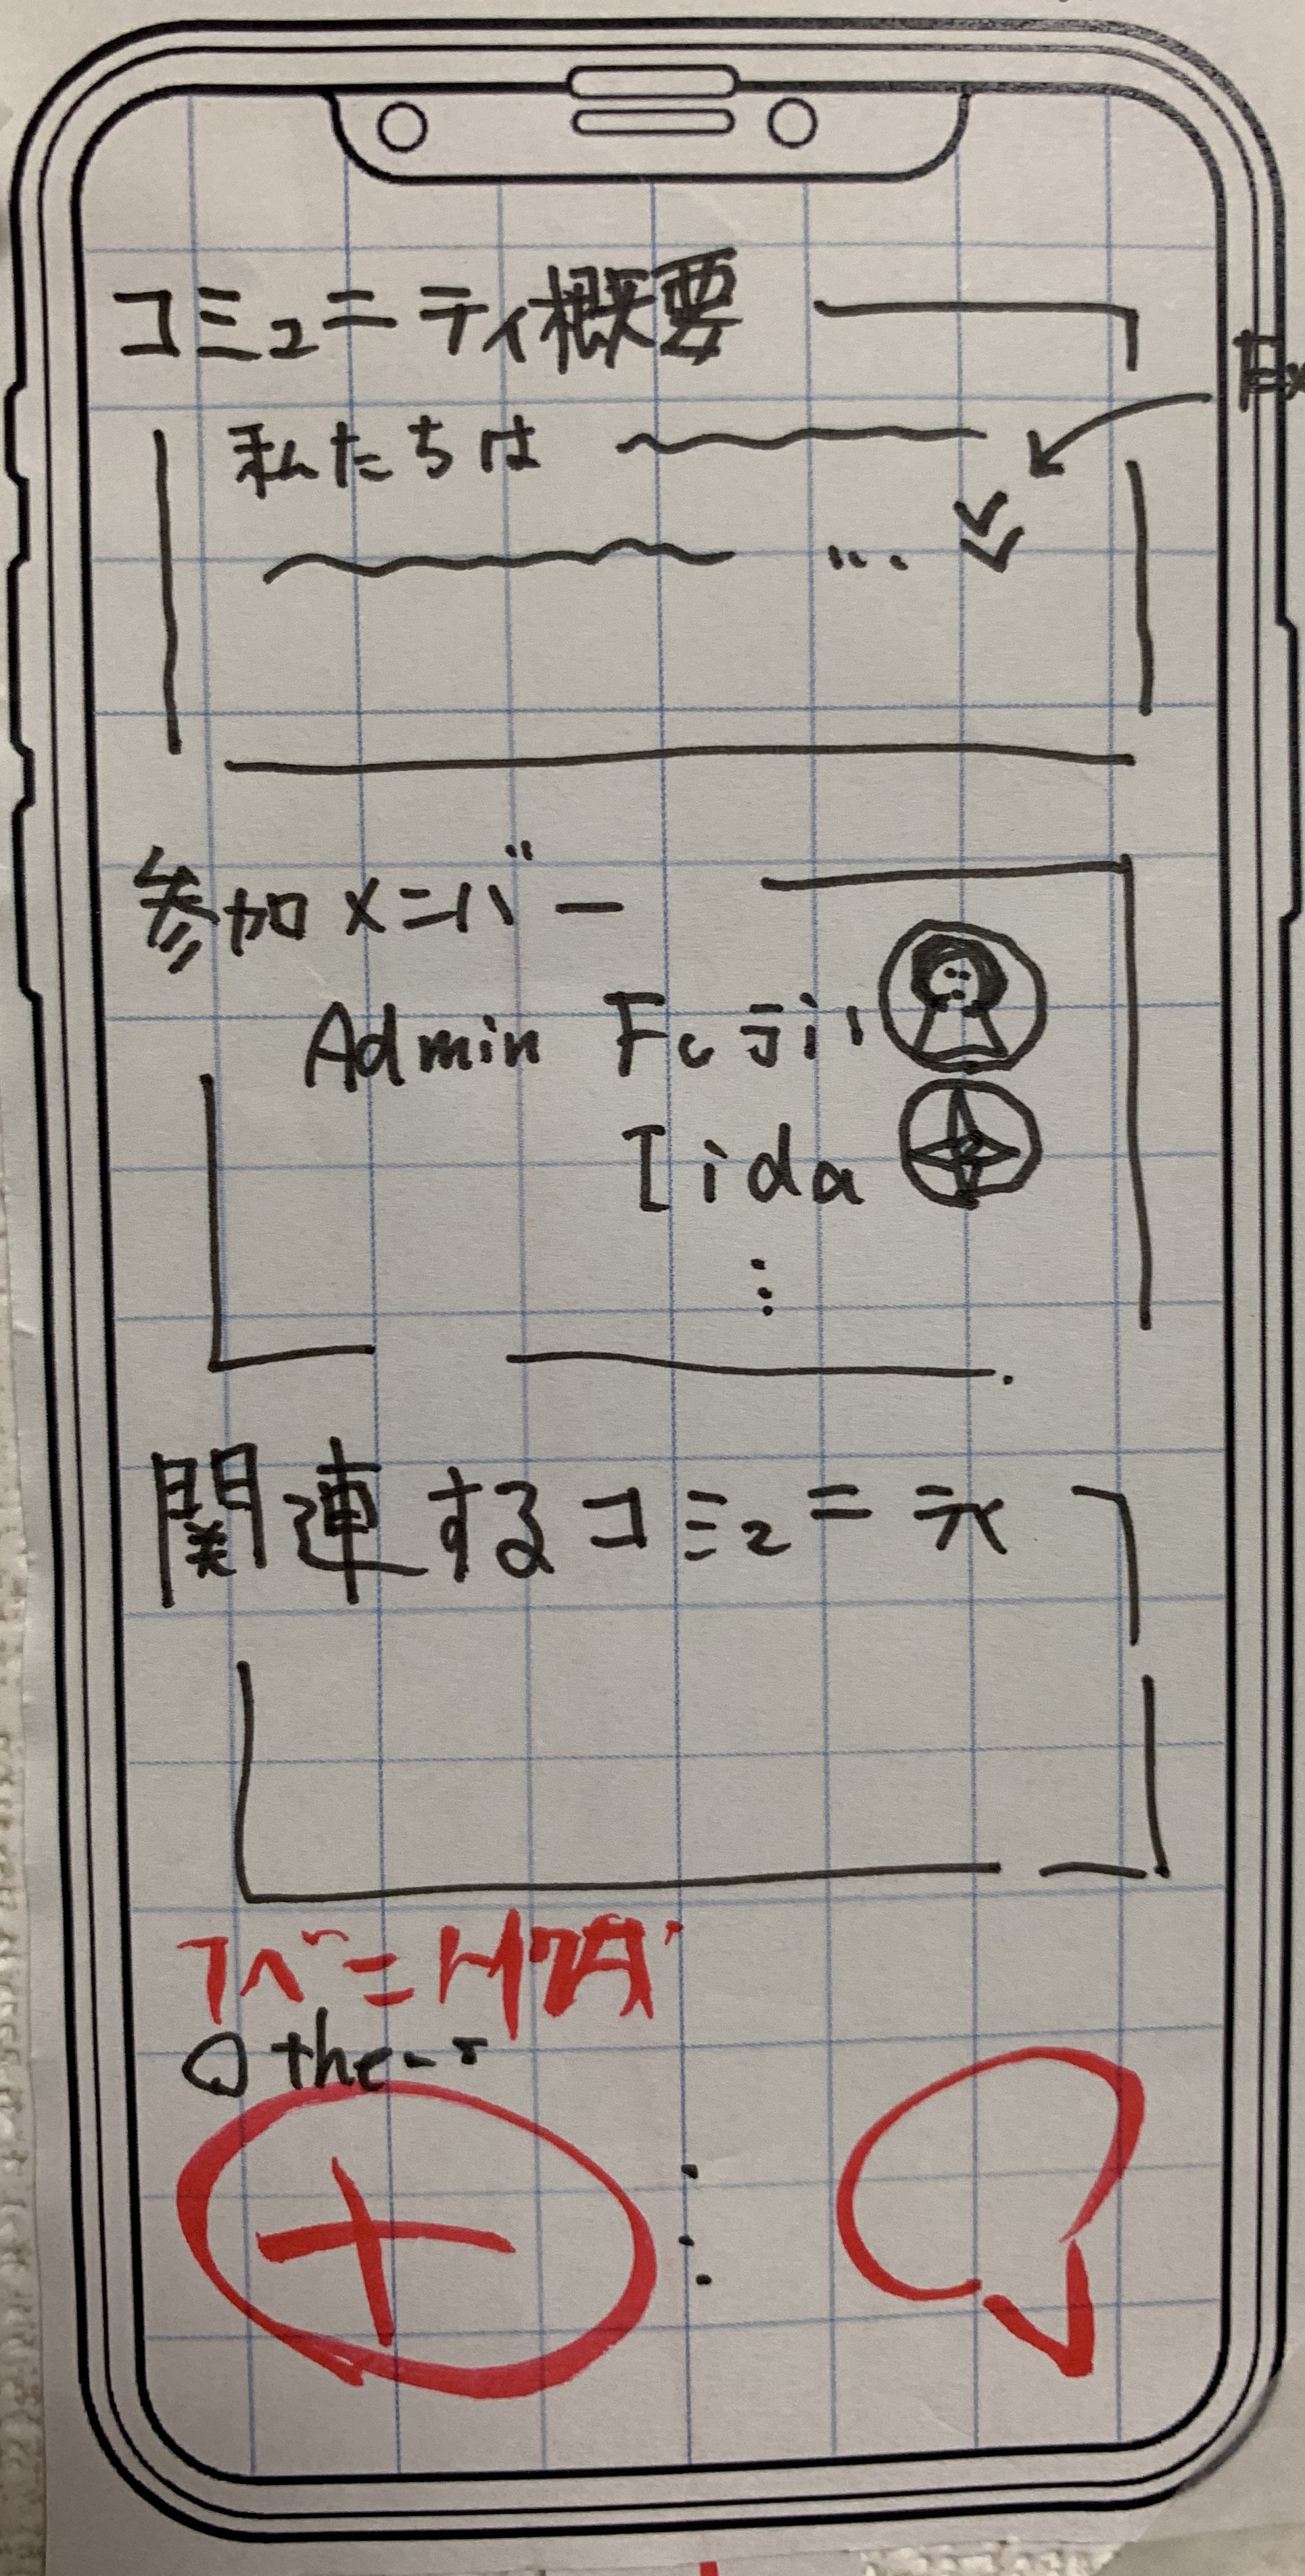 コミュニティ概要
私たちは
...
参加メンバー
Admin Fujii
Iida
関連するコミュニティ
Other